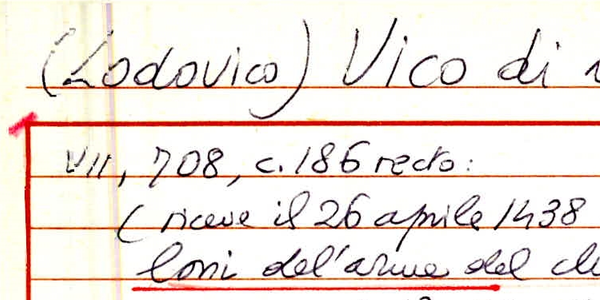 (Lodovico) Vico di
VII, 708, c. 186 recto:
(riceve il 26 aprile 1438
loni dell'arme del